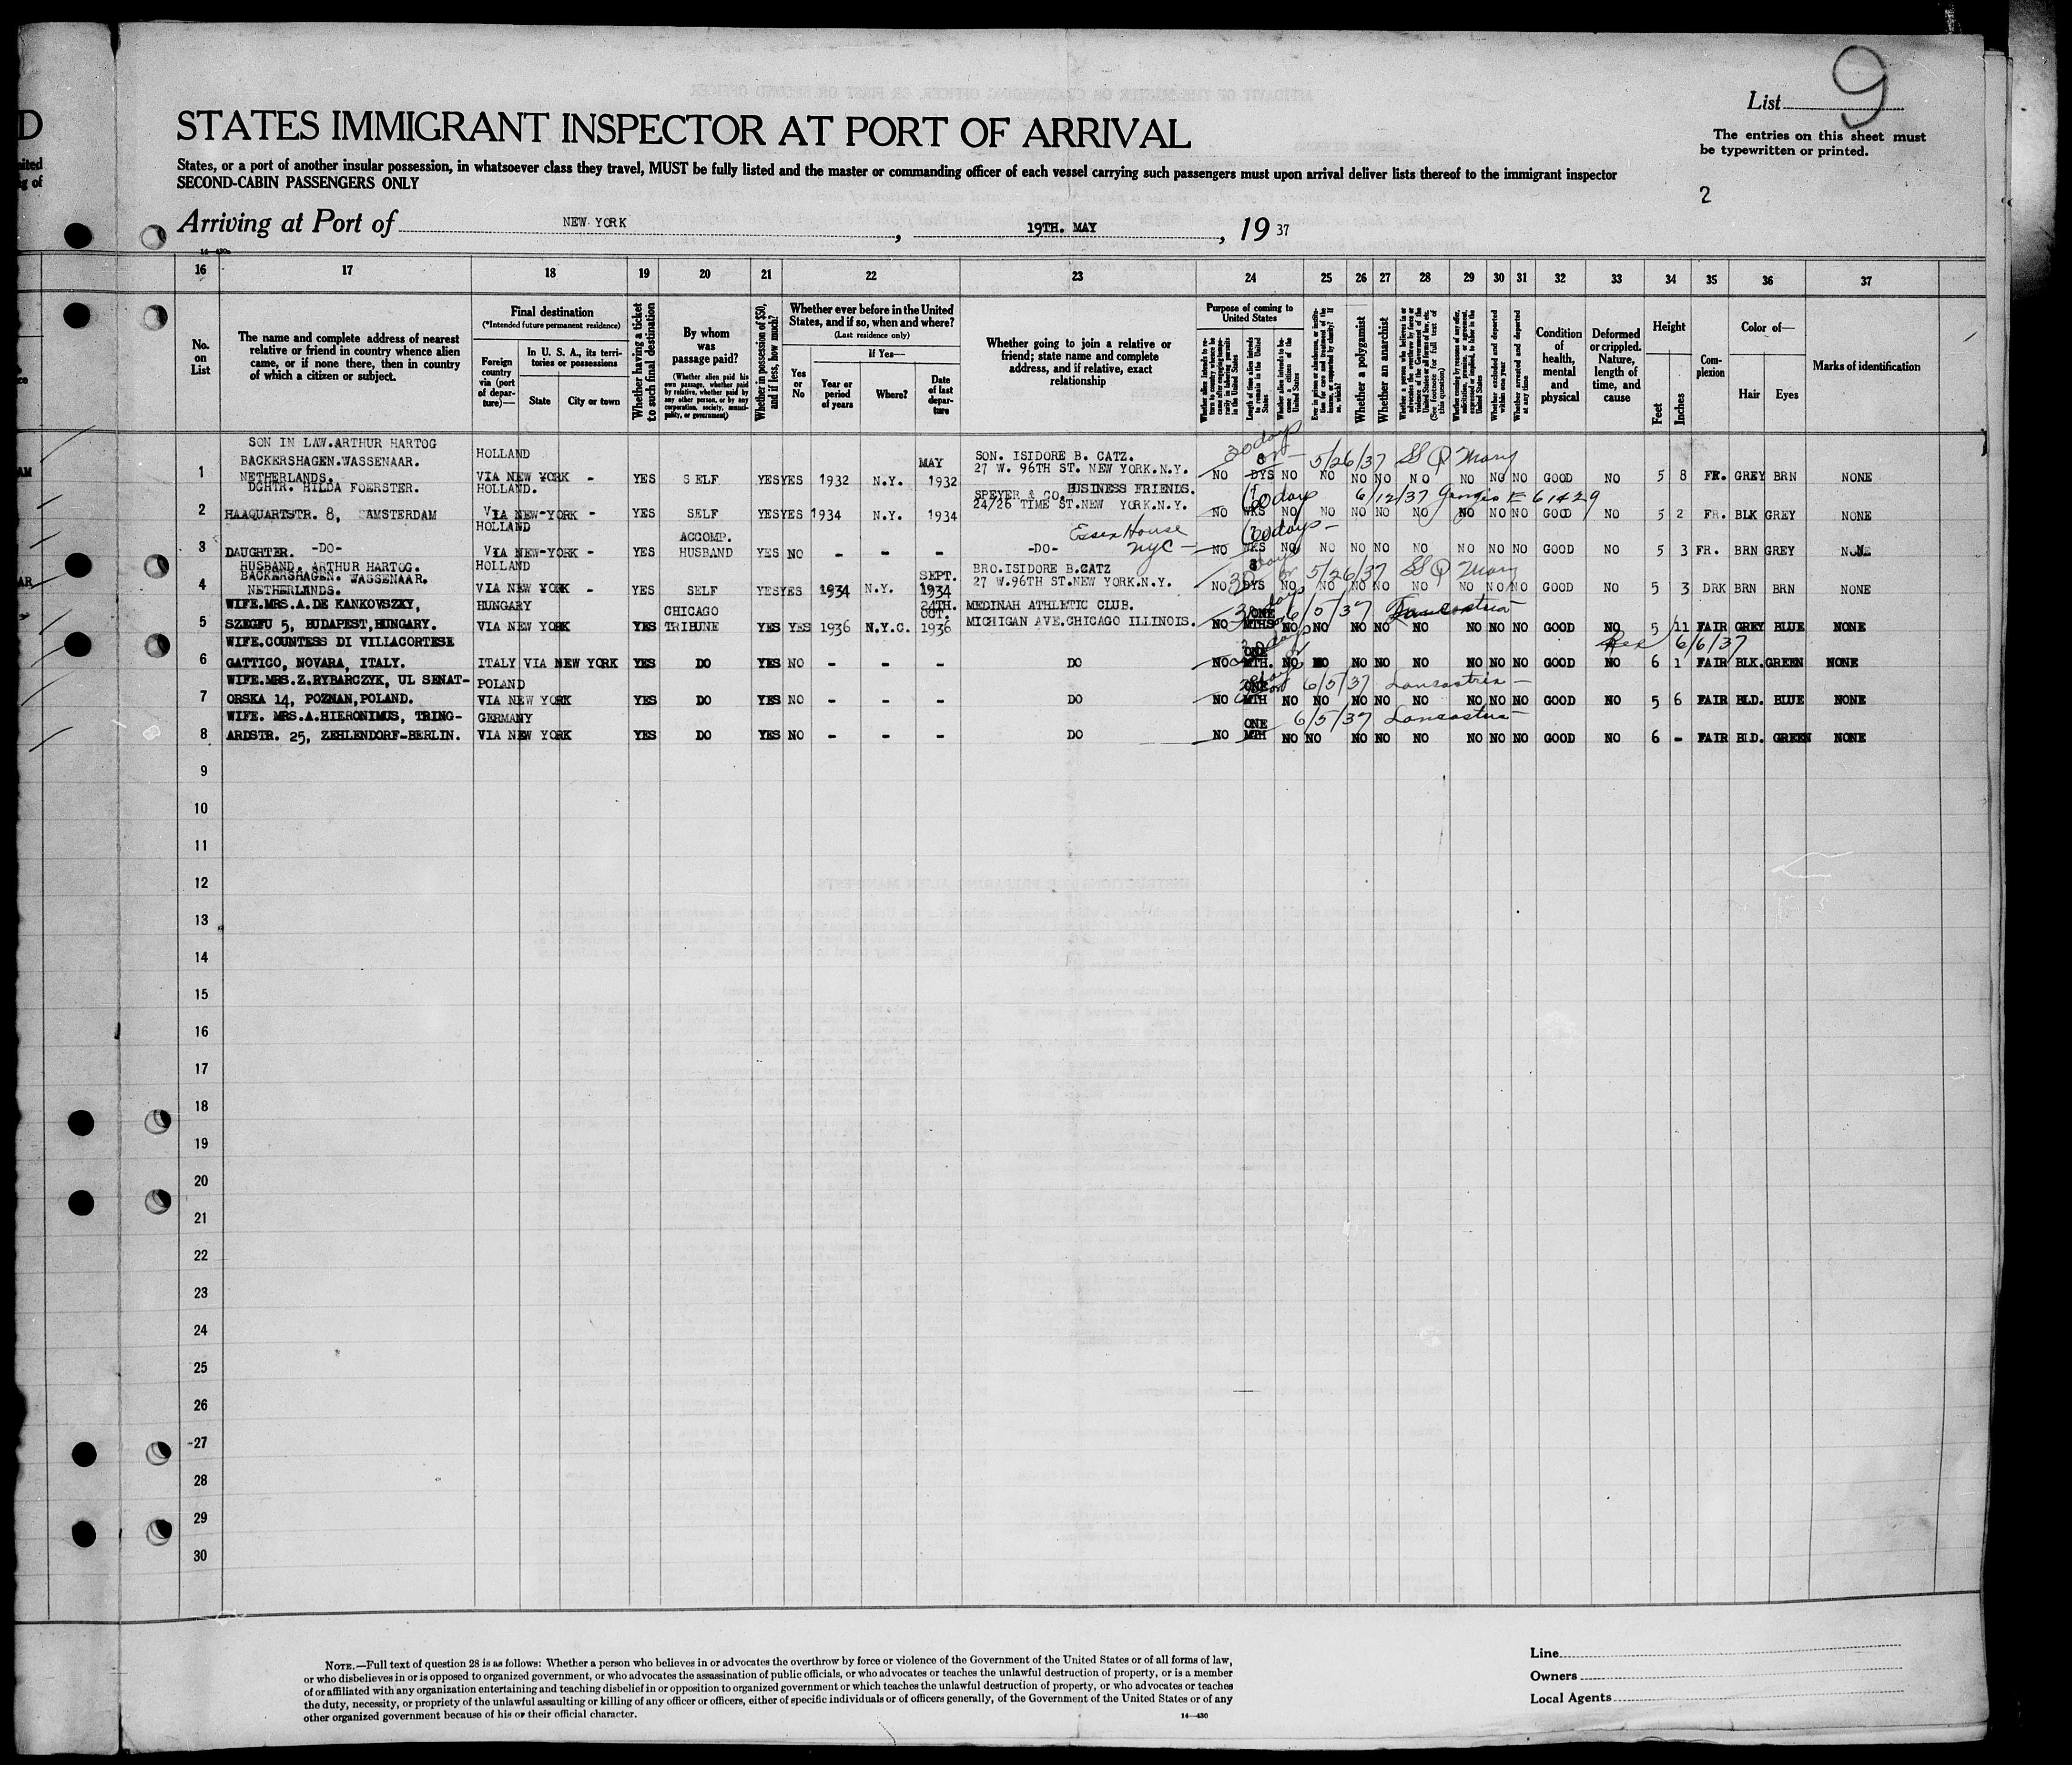 List 9
STATES IMMIGRANT INSPECTOR AT PORT OF ARRIVAL
The entries on this sheet must
be typewritten or printed.
States, or a port of another insular possession, in whatsoever class they travel, MUST be fully listed and the master or commanding officer of each vessel carrying such passengers must upon arrival deliver lists thereof to the immigrant inspector
SECOND-CABIN PASSENGERS ONLY
2
Arriving at Port of NEW YORK, 19TH. MAY, 19 37
16 17 18 19 20 21 22 23 24 25 26 27 28 29 30 31 32 33 34 35 36 37
No. on List
The name and complete address of nearest
relative or friend in country whence alien
came, or if none there, then in country
of which a citizen or subject.
Final destination
(*Intended future permanent residence)
Foreign country via (port of departure)—
In U. S. A., its territories or possessions
State City or town
Whether having a ticket to such final destination
By whom was passage paid?
(Whether alien paid his own passage, whether paid by relative, whether paid by any other person, or by any corporation, society, municipality, or government)
Whether in possession of $50, and if less, how much?
Whether ever before in the United
States, and if so, when and where?
(Last residence only)
Yes or No
If Yes—
Year or period of years
Where?
Date of last departure
Whether going to join a relative or
friend; state name and complete
address, and if relative, exact
relationship
Purpose of coming to United States
Whether a polygamist
Whether an anarchist
Whether excluded and deported within one year
Whether arrested and deported at any time
Condition of health, mental and physical
Deformed or crippled. Nature, length of time, and cause
Height
Feet Inches
Complexion
Color of—
Hair Eyes
Marks of identification
1 SON IN LAW.ARTHUR HARTOG
BACKERSHAGEN.WASSENAAR.
NETHERLANDS.
HOLLAND
VIA NEW YORK - YES SELF YES YES 1932 N.Y. MAY 1932
SON. ISIDORE B. CATZ.
27 W. 96TH ST. NEW YORK.N.Y.
30 days
NO 8 DYS NO NO NO NO NO NO NO NO GOOD NO 5 8 FR. GREY BRN NONE
5/26/37 SS Q Mary
2 DGHTR. HILDA FOERSTER.
HAAQUARTSTR. 8, AMSTERDAM
HOLLAND.
VIA NEW-YORK - YES SELF YES YES 1934 N.Y. 1934
SPEYER & CO. BUSINESS FRIENDS.
24/26 TIME ST.NEW YORK.N.Y.
60 days
6/12/37 Georgic E 61429
NO WKS NO NO NO NO NO NO NO NO GOOD NO 5 2 FR. BLK GREY NONE
3 DAUGHTER. -DO-
HOLLAND
VIA NEW-YORK - YES ACCOMP. HUSBAND YES NO - - -
-DO- Essex House
NYC -
60 days -
NO WKS NO NO NO NO NO NO NO NO GOOD NO 5 3 FR. BRN GREY NONE
4 HUSBAND. ARTHUR HARTOG.
BACKERSHAGEN. WASSENAAR.
NETHERLANDS.
HOLLAND
VIA NEW YORK - YES SELF YES YES 1934 N.Y. SEPT. 1934
BRO.ISIDORE B.CATZ
27 W.96TH ST.NEW YORK.N.Y.
30 days
5/26/37 SS Q Mary
NO 8 DYS NO NO NO NO NO NO NO NO GOOD NO 5 3 DRK BRN BRN NONE
5 WIFE.MRS.A.DE KANKOVSZKY,
SZEGFU 5, BUDAPEST,HUNGARY.
HUNGARY
VIA NEW YORK YES CHICAGO TRIBUNE YES YES 1936 N.Y.C. 24TH. OCT. 1936
MEDINAH ATHLETIC CLUB.
MICHIGAN AVE.CHICAGO ILLINOIS.
6/5/37 Lancastria
NO ONE MTHS NO NO NO NO NO NO NO NO GOOD NO 5 11 FAIR GREY BLUE NONE
6 WIFE.COUNTESS DI VILLACORTESE
GATTICO, NOVARA, ITALY.
ITALY VIA NEW YORK YES DO YES NO - - - DO
Rex 6/6/37
NO ONE MTH. NO NO NO NO NO NO NO NO GOOD NO 6 1 FAIR BLK. GREEN NONE
7 WIFE.MRS.Z.RYBARCZYK, UL SENAT-
ORSKA 14, POZNAN,POLAND.
POLAND
VIA NEW YORK YES DO YES NO - - - DO
6/5/37 Lancastria -
NO ONE MTH NO NO NO NO NO NO NO NO GOOD NO 5 6 FAIR BLD. BLUE NONE
8 WIFE. MRS.A.HIERONIMUS, TRING-
ARDSTR. 25, ZEHLENDORF-BERLIN.
GERMANY
VIA NEW YORK YES DO YES NO - - - DO
6/5/37 Lancastria
NO ONE MTH NO NO NO NO NO NO NO NO GOOD NO 6 - FAIR BLD. GREEN NONE
9
10
11
12
13
14
15
16
17
18
19
20
21
22
23
24
25
26
27
28
29
30
NOTE.—Full text of question 28 is as follows: Whether a person who believes in or advocates the overthrow by force or violence of the Government of the United States or of all forms of law,
or who disbelieves in or is opposed to organized government, or who advocates the assassination of public officials, or who advocates or teaches the unlawful destruction of property, or is a member
of or affiliated with any organization entertaining and teaching disbelief in or opposition to organized government or which teaches the unlawful destruction of property, or who advocates or teaches
the duty, necessity, or propriety of the unlawful assaulting or killing of any officer or officers, either of specific individuals or of officers generally, of the Government of the United States or of any
other organized government because of his or their official character.
14—430
Line
Owners
Local Agents